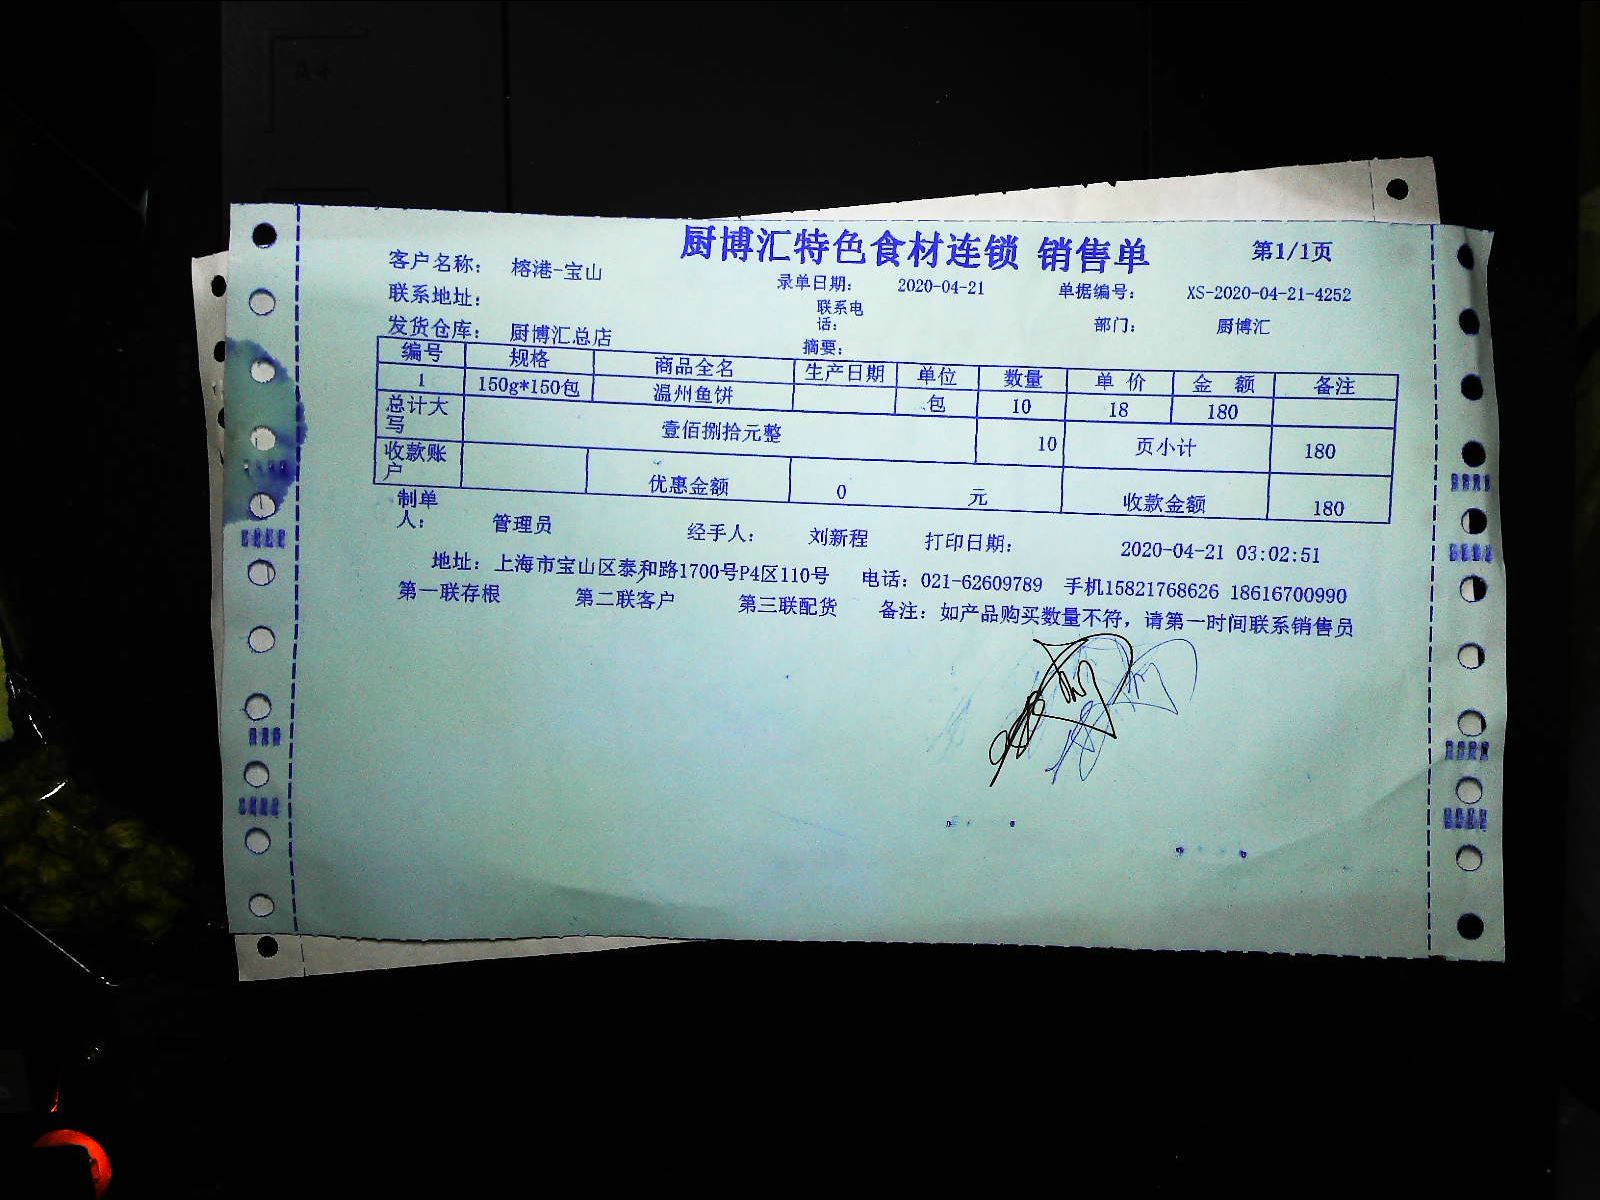 厨博汇特色食材连锁 销售单 第1/1页
客户名称： 榕港-宝山
录单日期： 2020-04-21 单据编号： XS-2020-04-21-4252
联系地址： 联系电话： 部门： 厨博汇
发货仓库： 厨博汇总店 摘要：
编号 规格 商品全名 生产日期 单位 数量 单 价 金 额 备注
1 150g*150包 温州鱼饼 包 10 18 180
总计大写 壹佰捌拾元整 10 页小计 180
收款账户 优惠金额 0 元 收款金额 180
制单人： 管理员 经手人： 刘新程 打印日期： 2020-04-21 03:02:51
地址：上海市宝山区泰和路1700号P4区110号 电话：021-62609789 手机15821768626 18616700990
第一联存根 第二联客户 第三联配货 备注：如产品购买数量不符，请第一时间联系销售员